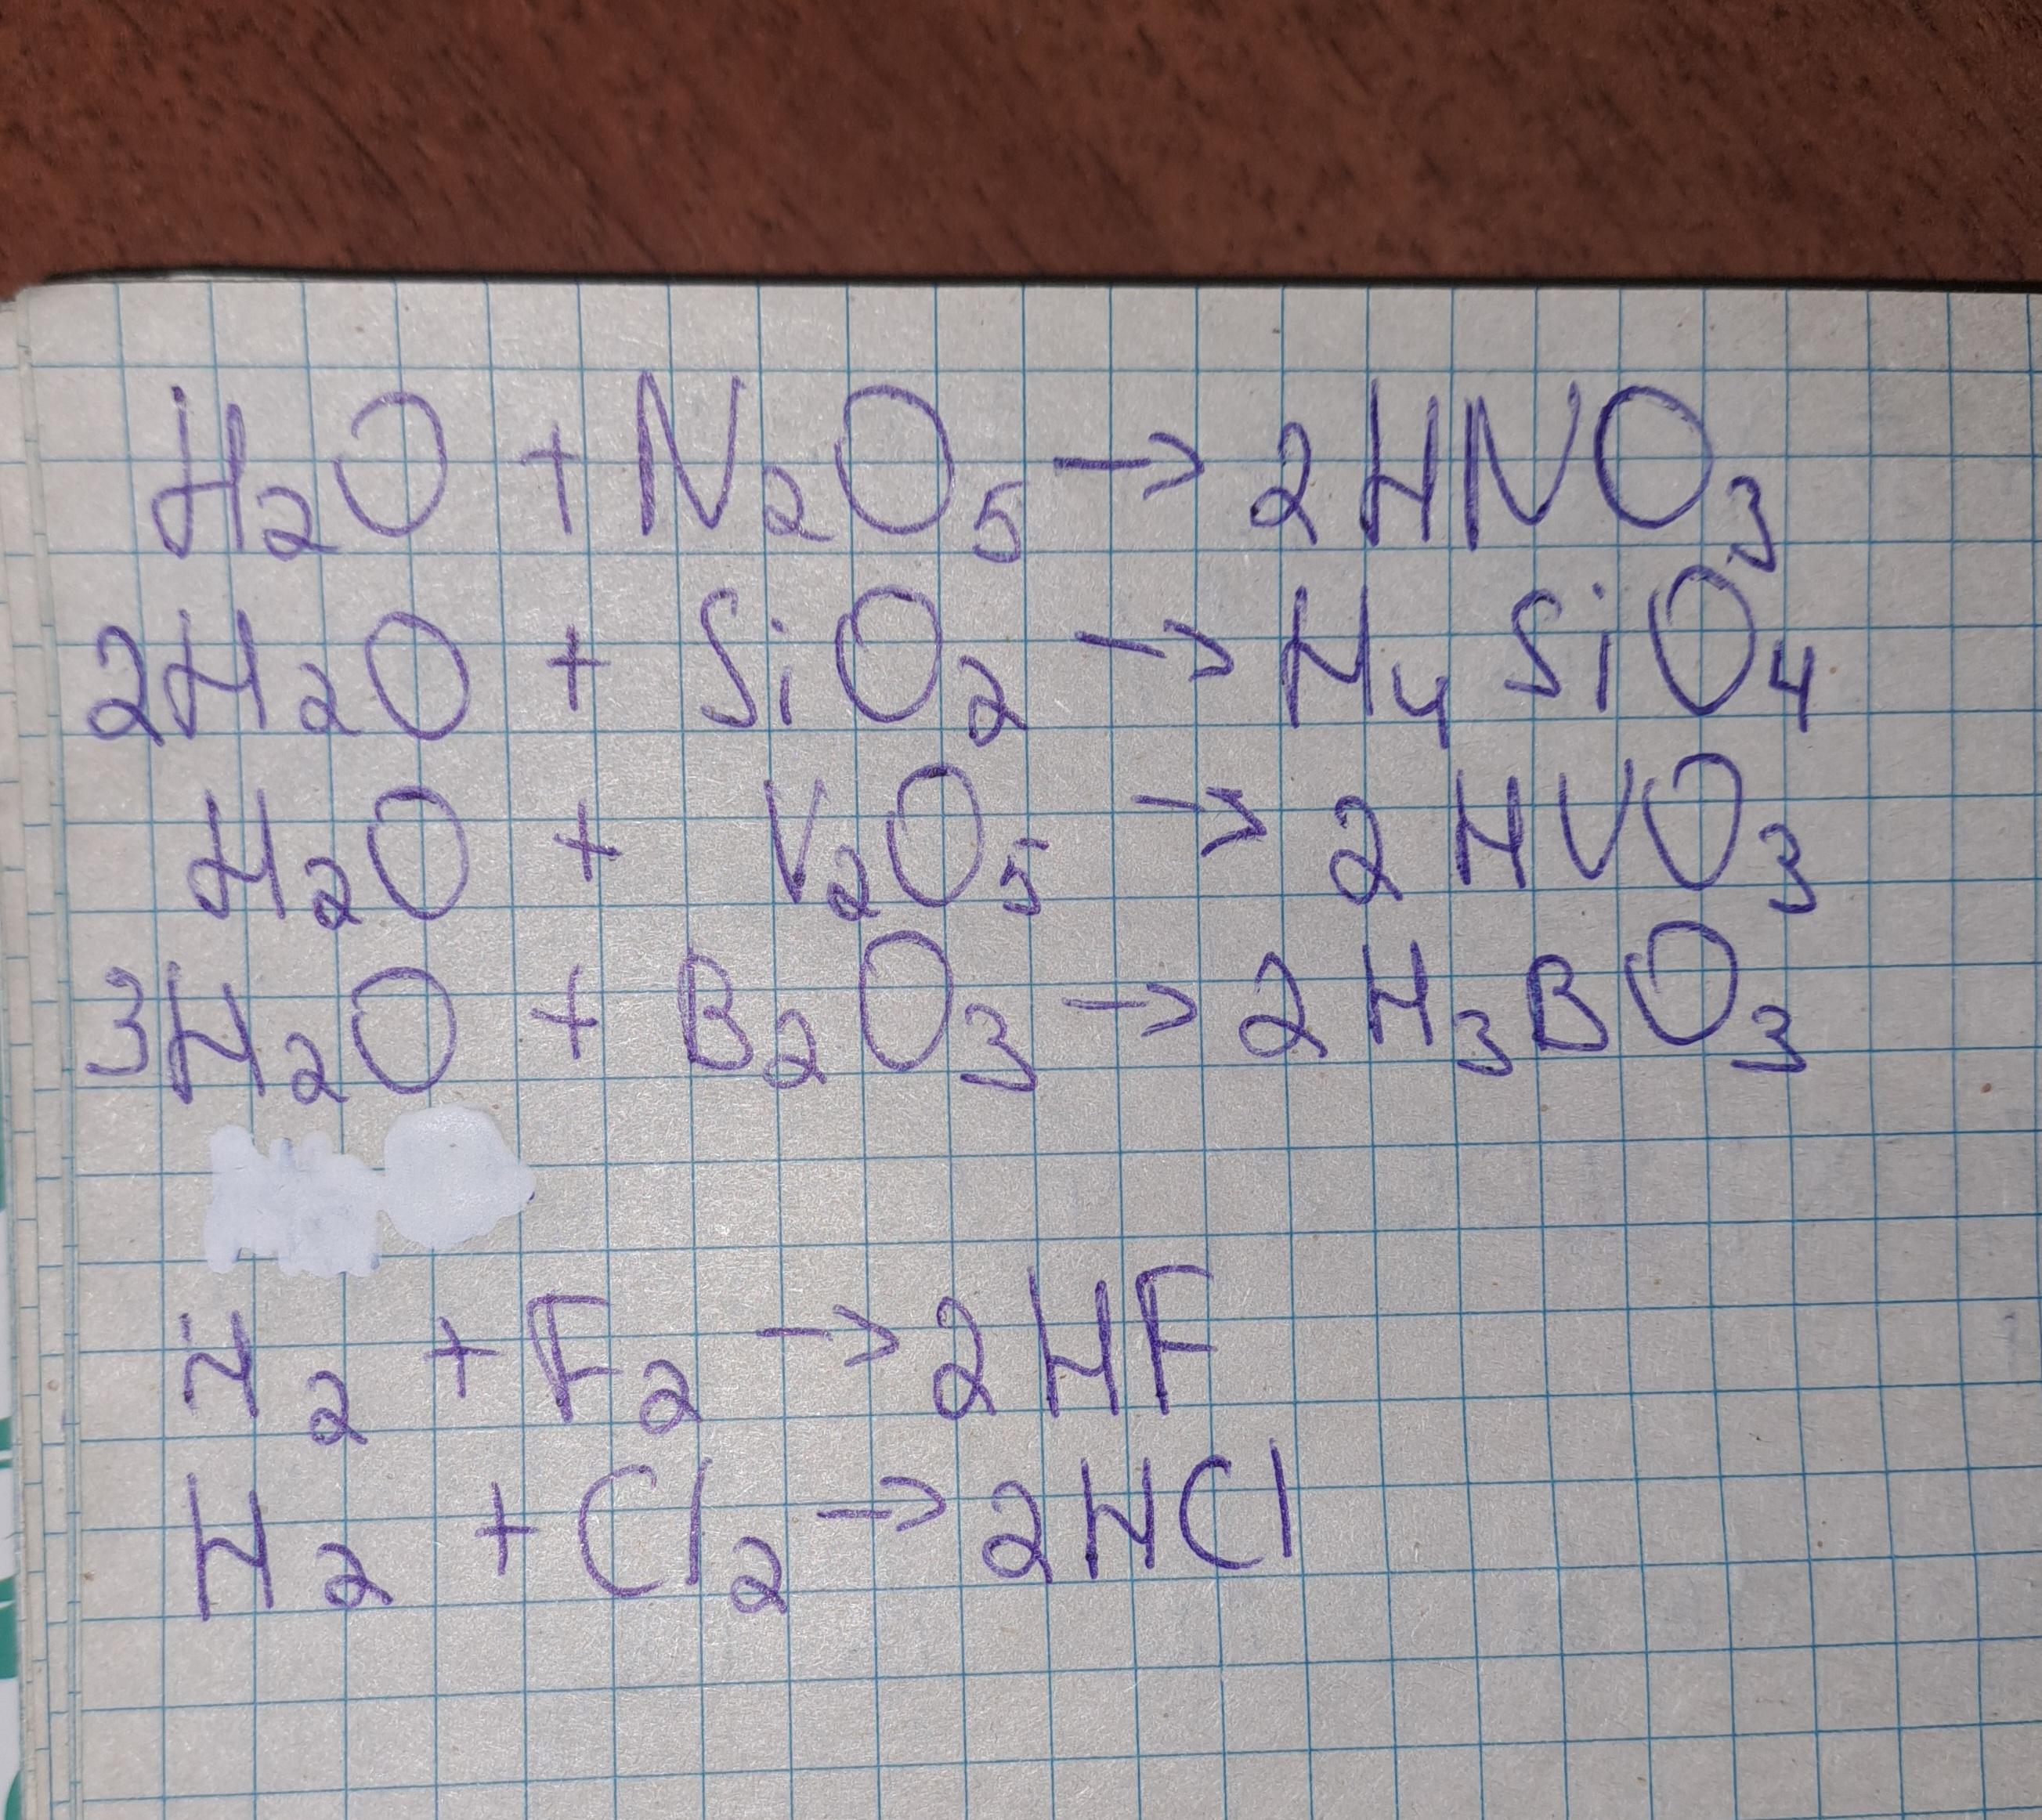 H₂O + N₂O₅ → 2HNO₃
2H₂O + SiO₂ → H₄SiO₄
H₂O + V₂O₅ → 2HVO₃
3H₂O + B₂O₃ → 2H₃BO₃
H₂ + F₂ → 2HF
H₂ + Cl₂ → 2HCl